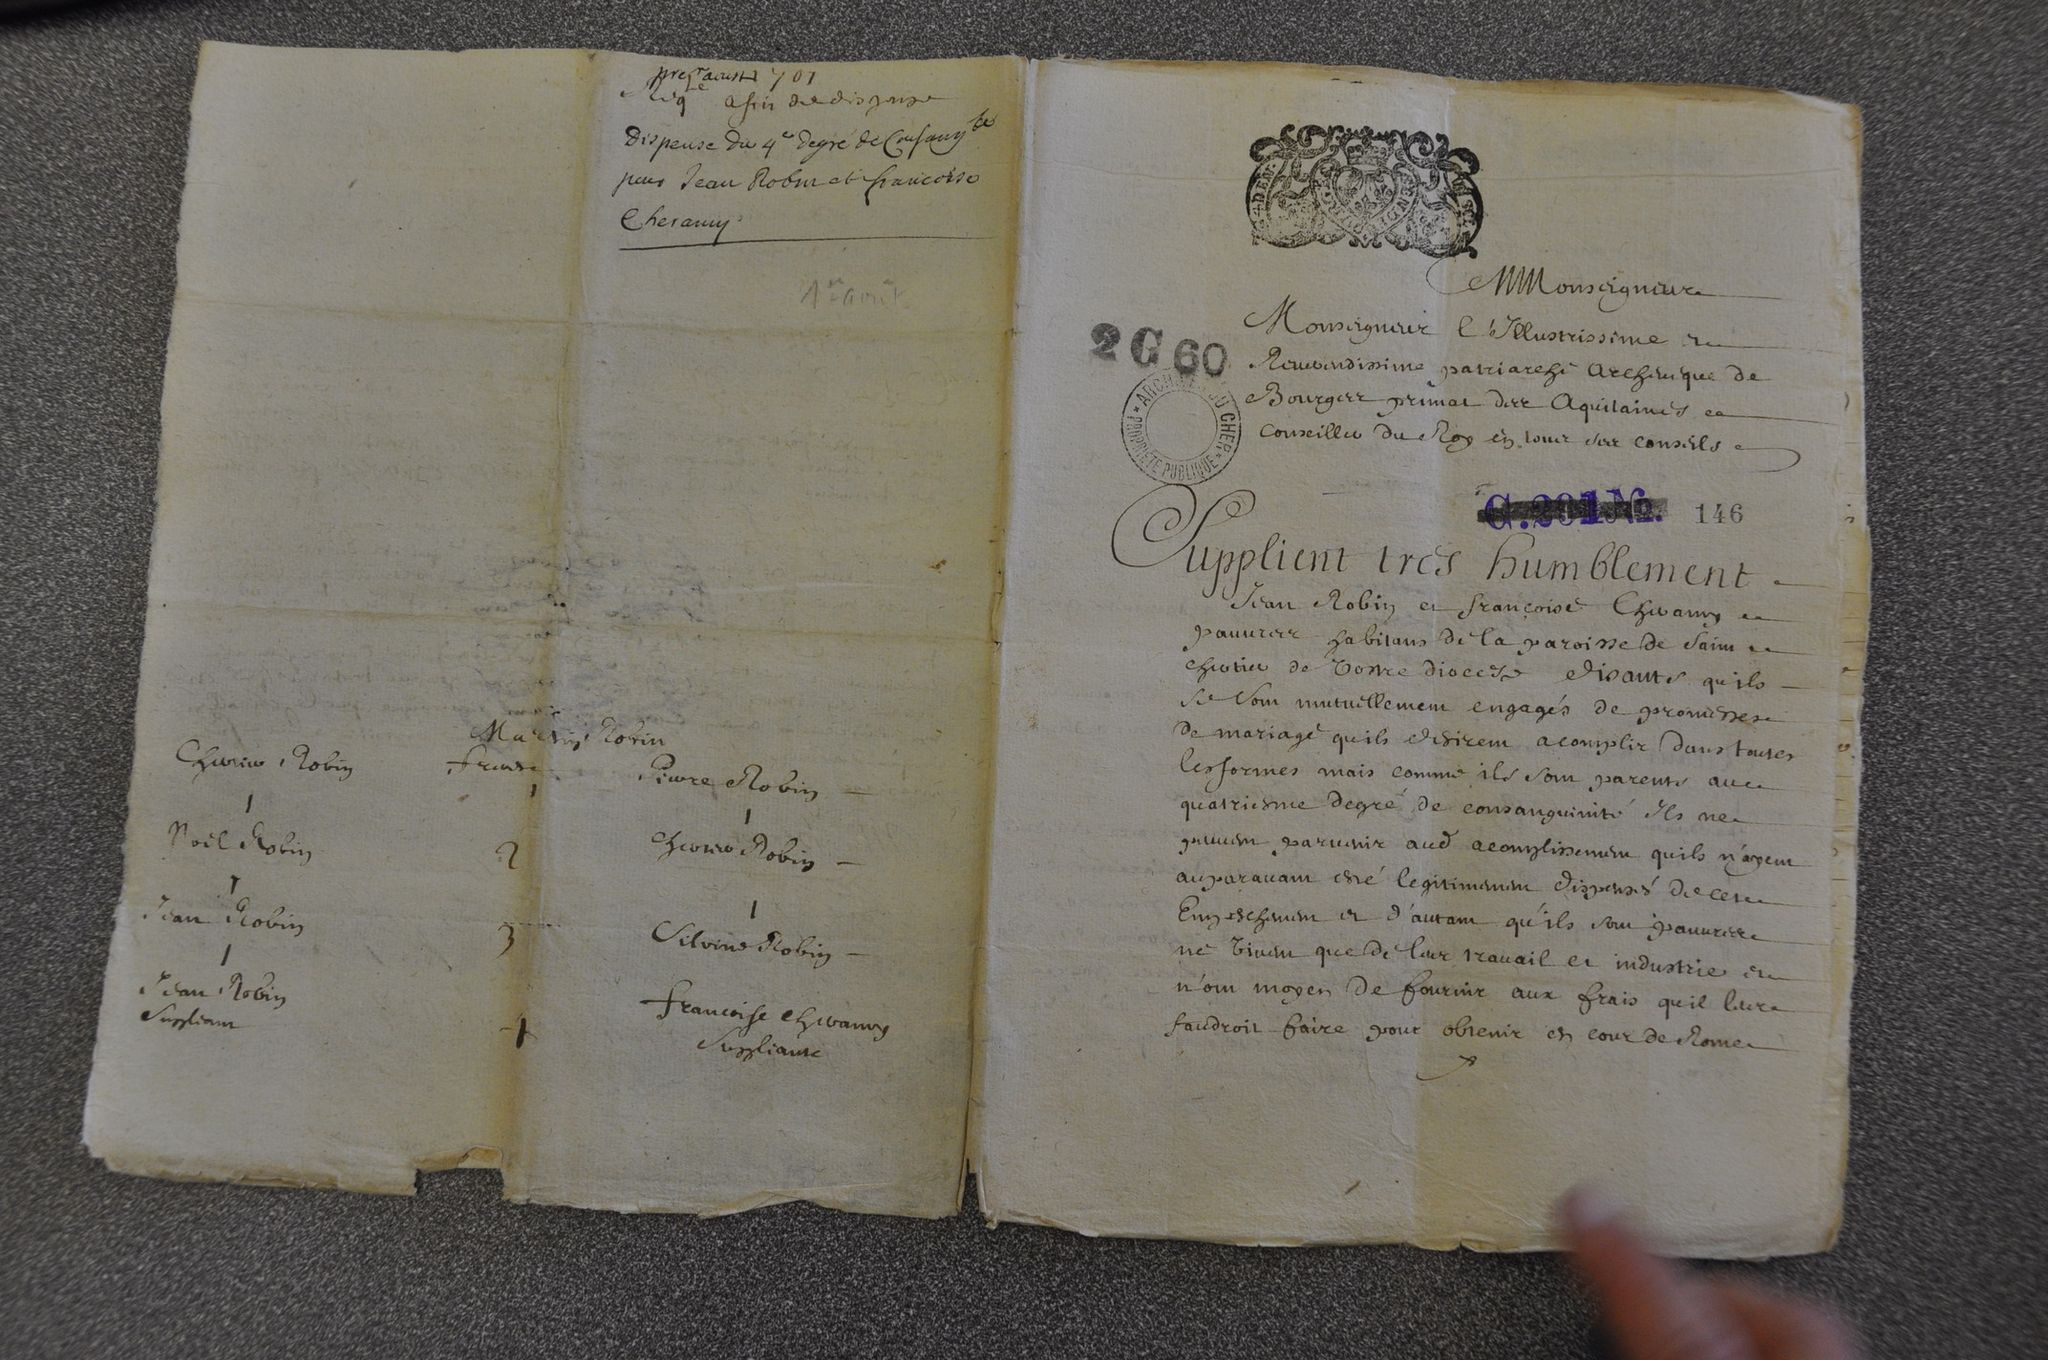 aoust 1701
Req.te afin de dispense
Dispense du 4e degré de Consang.té
pour Jean Robin et françoise
Cheramy
1er aoust
Martin Robin
Robin
frere
1
Pierre Robin
Noël Robin
2
Robin
Jean Robin
3
Silvine Robin
Jean Robin
Suppliant
4
Francoise Cheramy
Suppliante
Monseigneur
2 G 60
ARCHIVES DU CHER
PROPRIETE PUBLIQUE
Monseigneur l'Illustrissime et
Reverendissime patriarche Archeveque de
Bourges primat des Aquitaines
Conseiller du Roy en tous ses conseils
G. 201 No. 146
Supplient tres humblement
Jean Robin et françoise Cheramy
pauvres habitans de la paroisse de Saint
de vostre diocese disants qu'ils
se sont mutuellement engagés de promesses
de mariage qu'ils desirent acomplir dans toutes
les formes mais comme ils sont parents au
quatriesme degré de consanguinité Ils ne
peuvent parvenir aud acomplissement qu'ils n'ayent
auparavant esté legitimement dispensé de cet
Empeschement et d'autant qu'ils sont pauvres
ne vivent que de leur travail et industrie et
n'ont moyen de fournir aux frais qu'il leur
faudroit faire pour obtenir en cour de Rome